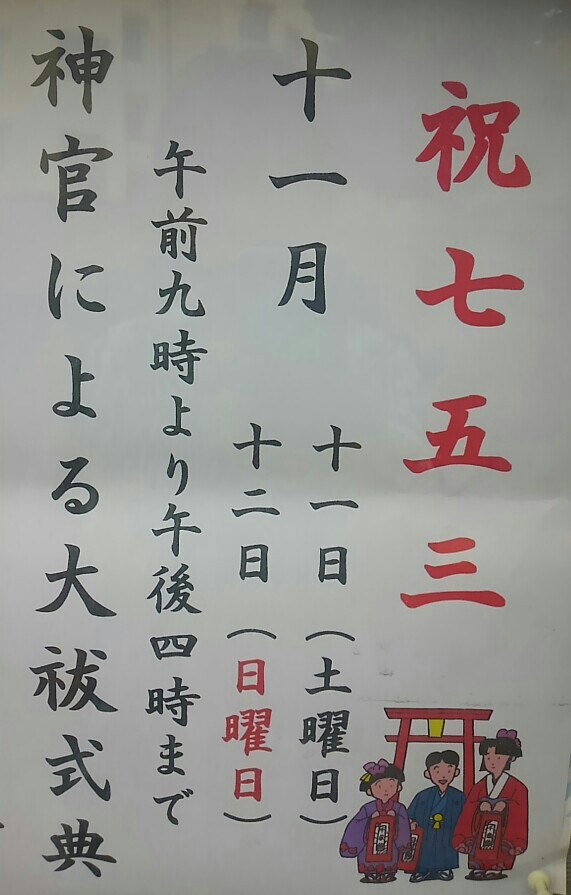 祝七五三
十一月
十一日(土曜日)
十二日(日曜日)
午前九時より午後四時まで
神官による大祓式典